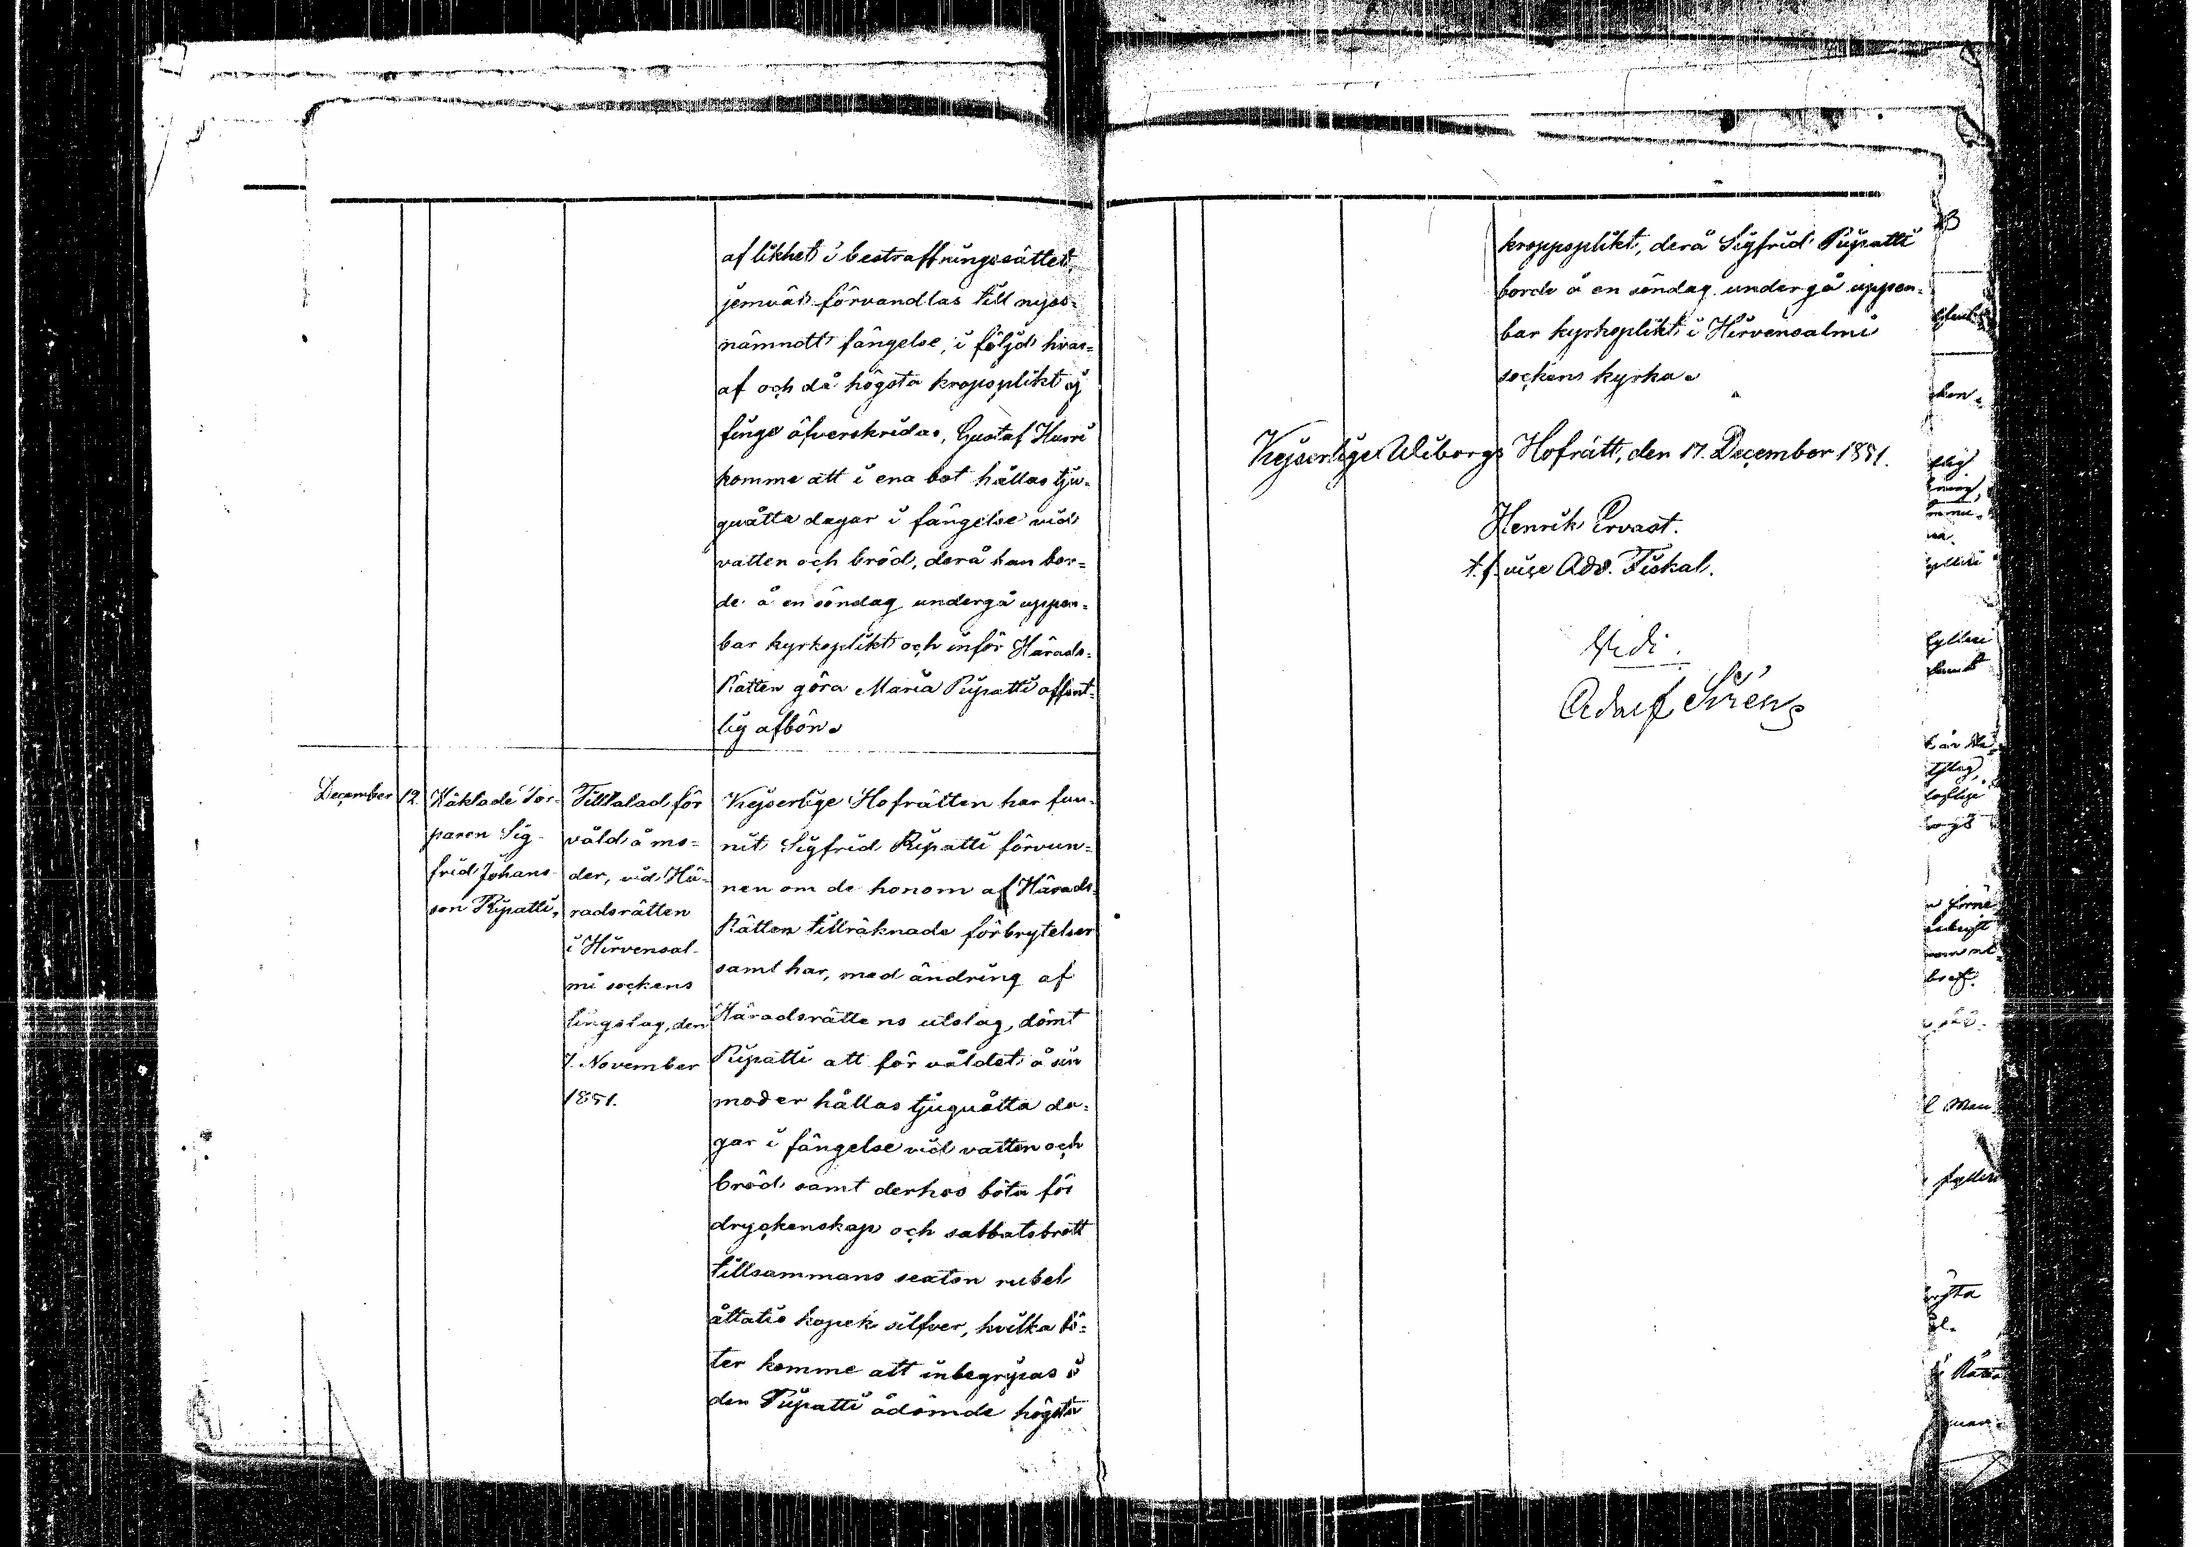 af likhet i bestraffningssättet,
jemväl förvandlas till nyss-
nämnott fängelse, i följd hvar-
af och då högsta kropsplikt ej
finge öfverskridas, Gustaf Husri
komme att i ena bot hållas tju-
guåtta dagar i fängelse vid
vatten och bröd, derå han bor-
de å en söndag undergå uppen-
bar kyrkoplikt och inför Härads-
Rätten göra Maria Ripatti offent-
lig afbön.
December 12. Häktade Tor-
paren Sig-
frid Johans-
son Ripatti,
Tilltalad för
våld å mo-
der, vid Hä-
radsrätten
i Hirvensal-
mi sockens
tingslag, den
7. November
1851.
Kejserlige Hofrätten har fun-
nit Sigfrid Ripatti förvun-
nen om de honom af Härads-
Rätten tillräknade förbrytelser
samt har, med ändring af
Häradsrättens utslag, dömt
Ripatti att för våldet å sin
moder hållas tjuguåtta da-
gar i fängelse vid vatten och
bröd samt derhos böta för
dryckenskap och sabbatsbrott
tillsammans sexton rubel
åttatio kopek silfver, hvilka bö-
ter komme att inbegripas i
den Ripatti ådömde högsta
kroppsplikt, derå Sigfrid Ripatti
borde å en söndag undergå uppen-
bar kyrkoplikt i Hirvensalmi
sockens kyrka.
Kejserlige Wiborgs Hofrätt, den 17. December 1851.
Henrik Ervast.
t. f. vice Adv. Fiskal.
Vidi.
Adolf Sirén